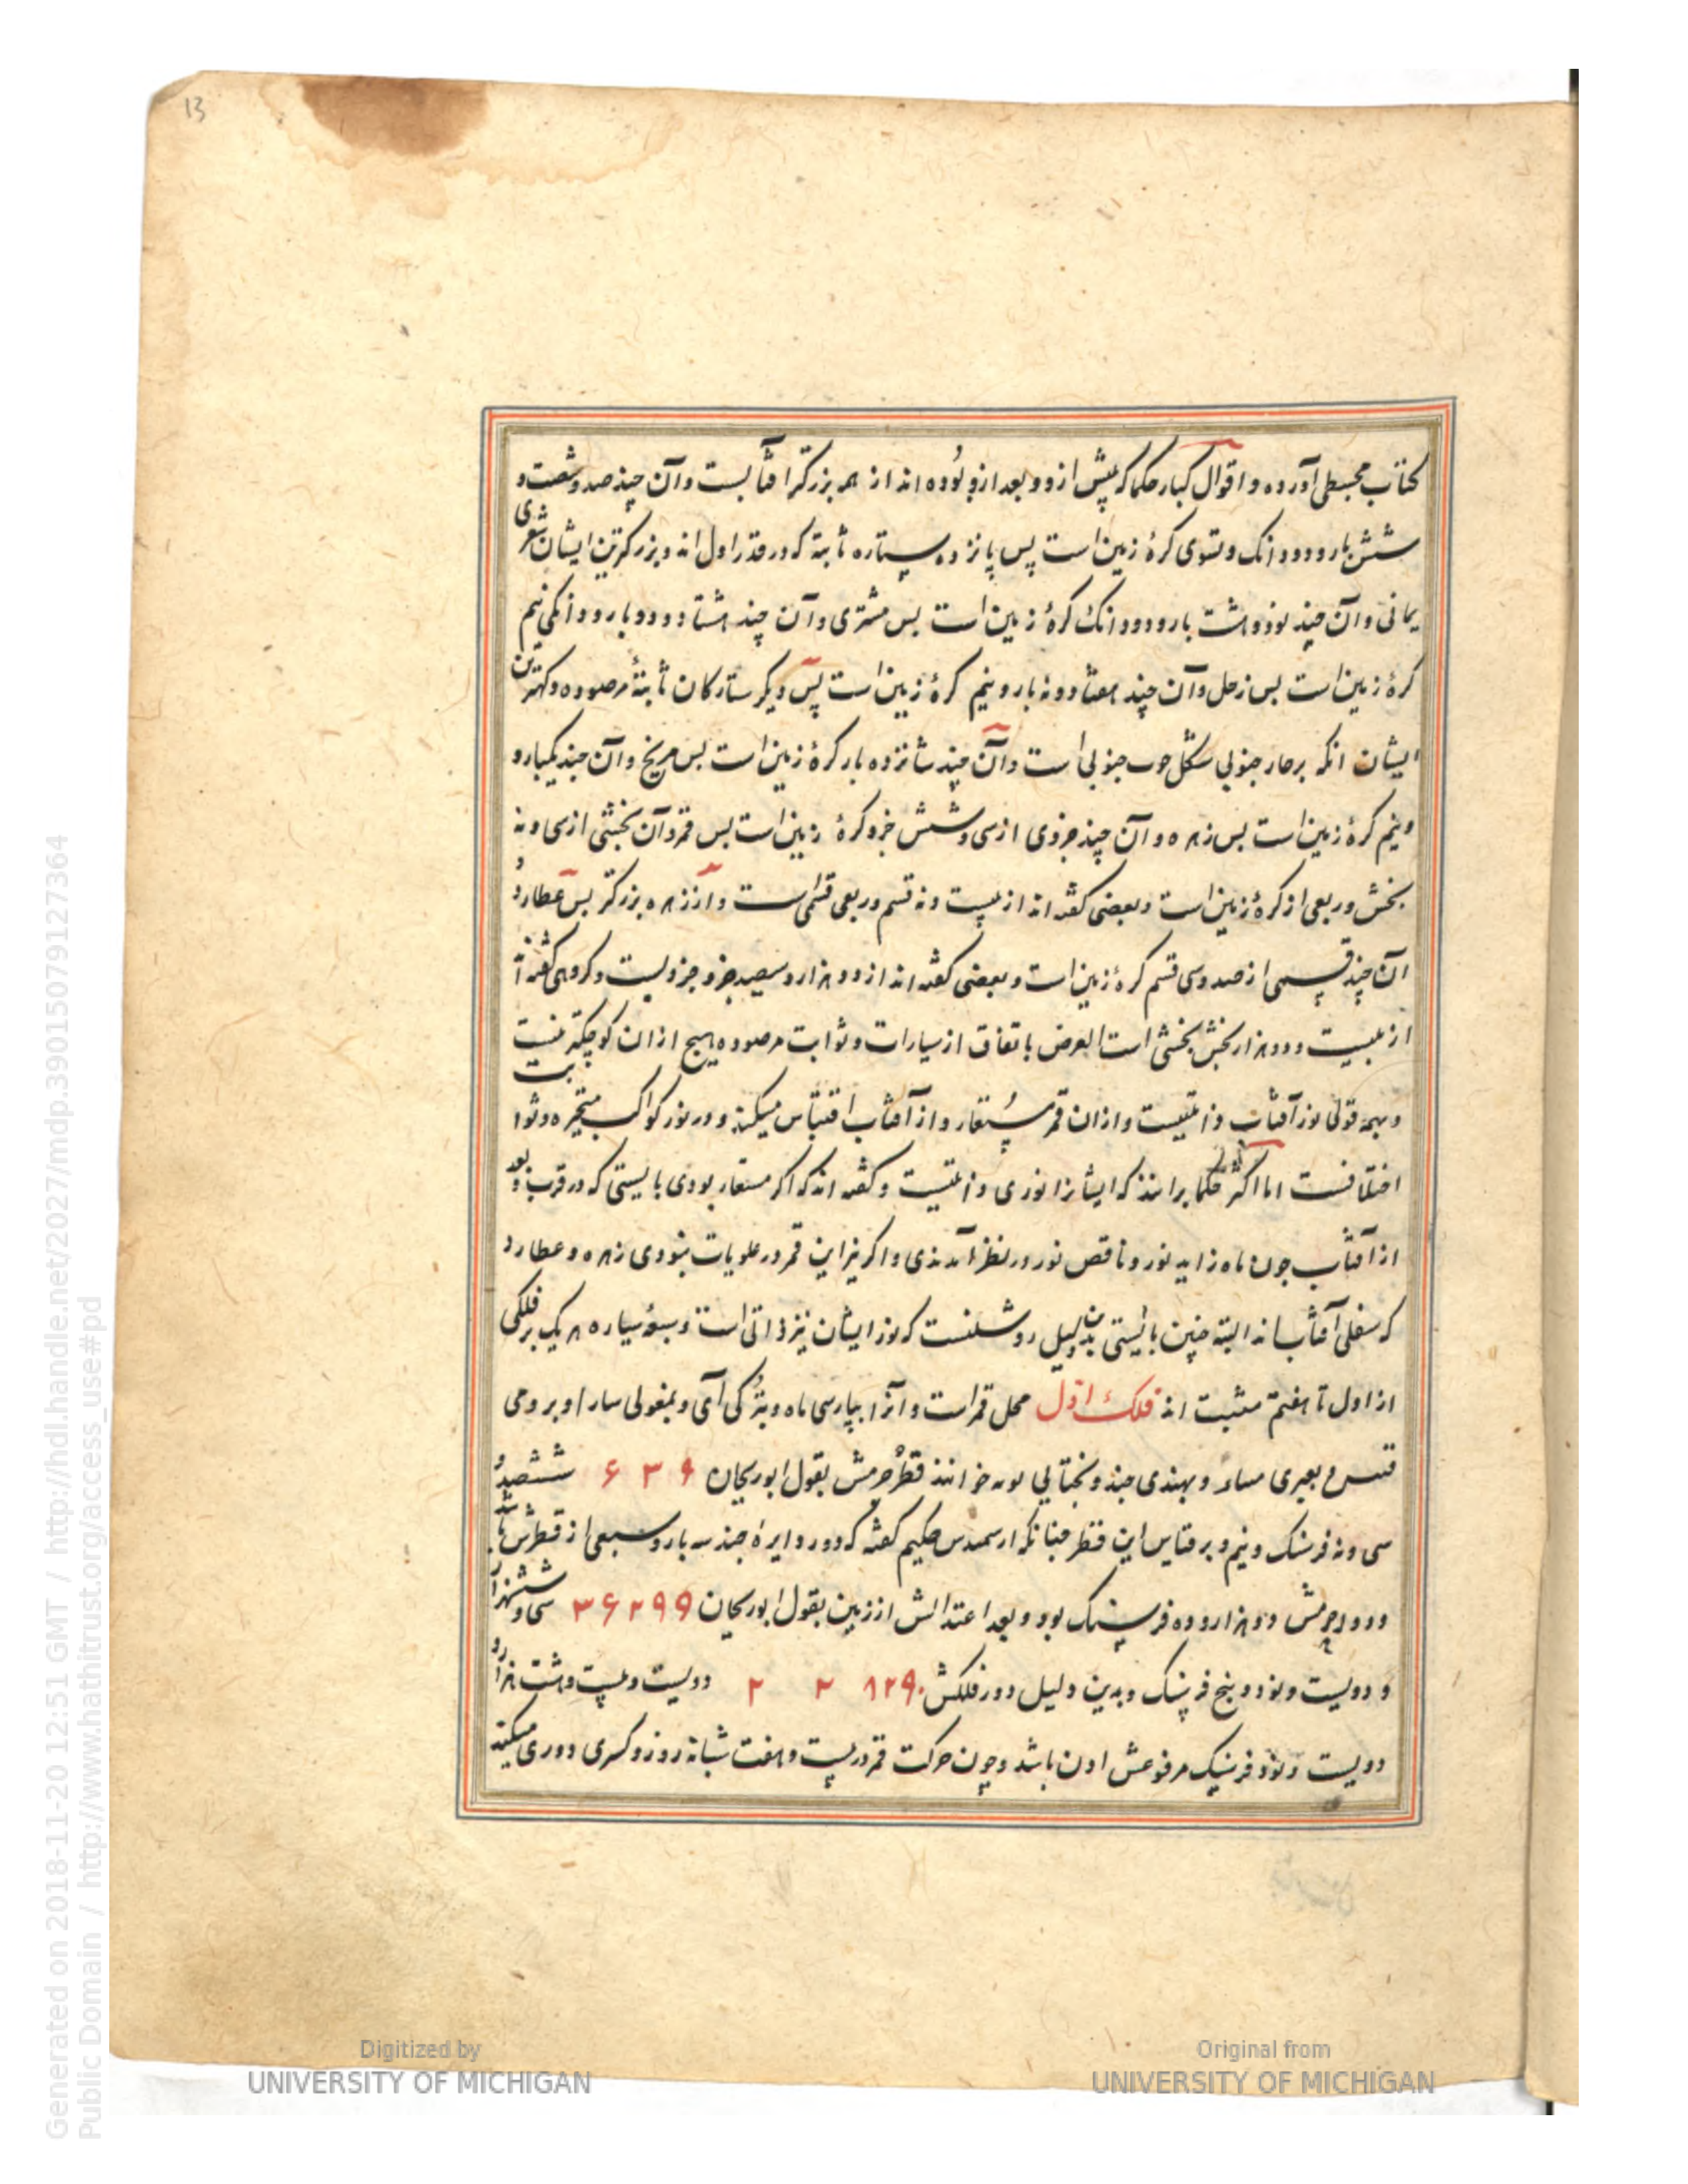 13
کتاب مجسطی آورده و اقوال کبار حکما که پیش ازو و بعد ازو بوده اند از همه بزرکتر افتابست و آن چند صد و شصت و
شش بار و دو دانک و تسوی کرهٔ زمین است پس پانزده ستاره ثابته که در قدر اول اند و بزرکترین ایشان شعری
یمانی و آن چند نود و هشت بار و دو دانک کرهٔ زمین است بس مشتری و آن چند هشتاد و دو بار و دانکی نیم
کرهٔ زمین است بس زحل و آن چند هفتاد و نه بار و نیم کرهٔ زمین است پس دیکر ستارکان ثابتهٔ مرصوده و کهترین
ایشان انکه بر جنوبی جنوبی است و آن چند شانزده بار کرهٔ زمین است بس مریخ و آن چند یکبار و
و نیم کرهٔ زمین است بس زهره و آن چند جزوی از سی و شش جزو کرهٔ زمین است بس قمر و آن بخشی از سی و نه
بخش و ربعی از کرهٔ زمین است و بعضی کفته اند از بیست و نه قسم و ربعی قسمی است و از زهره بزرکتر بس عطارد و
آن چند قسمی از صد و سی قسم کرهٔ زمین است و بعضی کفته اند از دو هزار و سیصد جزو جزویست و کروهی کفته اند
از بیست و دو هزار بخش بخشی است الغرض باتفاق از سیارات و ثوابت مرصوده هیچ ازان کوچکتر نیست
و بهمه قولی نور آفتاب ذاتیست و ازان قمر مستعار و از آفتاب اقتباس میکند و در نور کواکب متحیره و ثوابت
اختلافست اما اکثر حکما برانند که ایشانرا نوری ذاتیست و کفته اند که اکر مستعار بودی بایستی که در قرب و بعد
از آفتاب چون ماه زاید نور و ناقص نور در نظر آمدندی و اکر نیز این قمر در علویات نبودی زهره و عطارد
که سفلی آفتاب اند البته چنین بایستی بدین دلیل روشنست که نور ایشان نیز ذاتی است و سبعهٔ سیاره هر یک بر فلکی
از اول تا هفتم مثبت اند فلک اول محل قمر است و آنرا بپارسی ماه و بترکی آی و بمغولی سارا و برومی
و بعبری و بهندی چند و بختایی خوانند قطر جرمش بقول ابوریحان ۶۳۹ ششصد و
سی و نه فرسنک و نیم و بر قیاس این قطر چنانکه ارسمیدس حکیم کفته که دور دایره چند سه بار و سبعی از قطرش باشد
دور جرمش دو هزار و ده فرسنک بود و بعد اعتدالش از زمین بقول ابوریحان ۳۶۲۹۹ سی و شش هزار
و دویست و نود و پنج فرسنک و بدین دلیل دور فلکش ۲ ۲ ۸۲۹۰ دویست و بیست و هشت هزار و
دویست و نود فرسنک مرفوعش اون باشد و چون حرکت قمر در بیست و هفت شبانه روز و کسری دوری میکند
Generated on 2018-11-20 12:51 GMT / http://hdl.handle.net/2027/mdp.39015079127364
Public Domain / http://www.hathitrust.org/access_use#pd
Digitized by
UNIVERSITY OF MICHIGAN
Original from
UNIVERSITY OF MICHIGAN